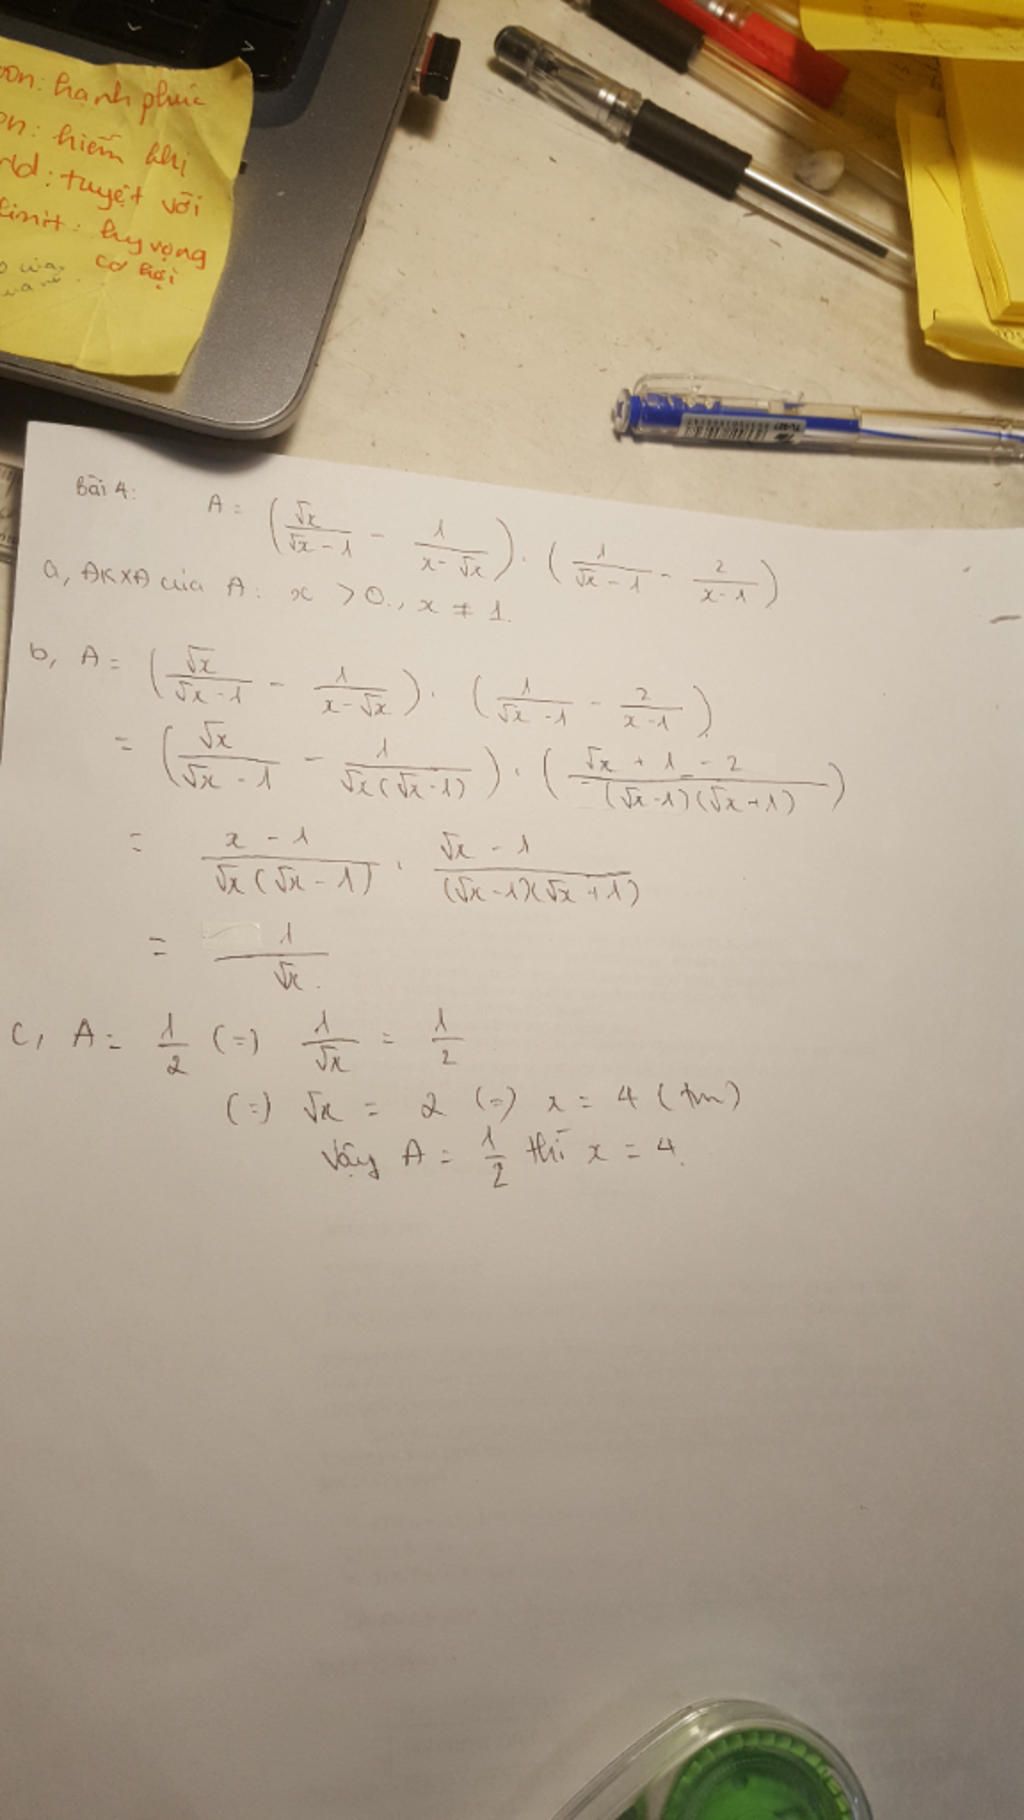 hạnh phúc
hiếm khi
tuyệt vời
hy vọng
cơ hội
Bài 4: A = (√x/(√x - 1) - 1/(x - √x)) . (1/(√x - 1) - 2/(x - 1))
a, ĐKXĐ của A: x > 0, x ≠ 1.
b, A = (√x/(√x - 1) - 1/(x - √x)) . (1/(√x - 1) - 2/(x - 1))
= (√x/(√x - 1) - 1/(√x(√x - 1))) . ((√x + 1 - 2)/((√x - 1)(√x + 1)))
= (x - 1)/(√x(√x - 1)) . (√x - 1)/((√x - 1)(√x + 1))
= 1/√x.
c, A = 1/2 (=) 1/√x = 1/2
(=) √x = 2 (=) x = 4 (tm)
Vậy A = 1/2 thì x = 4.